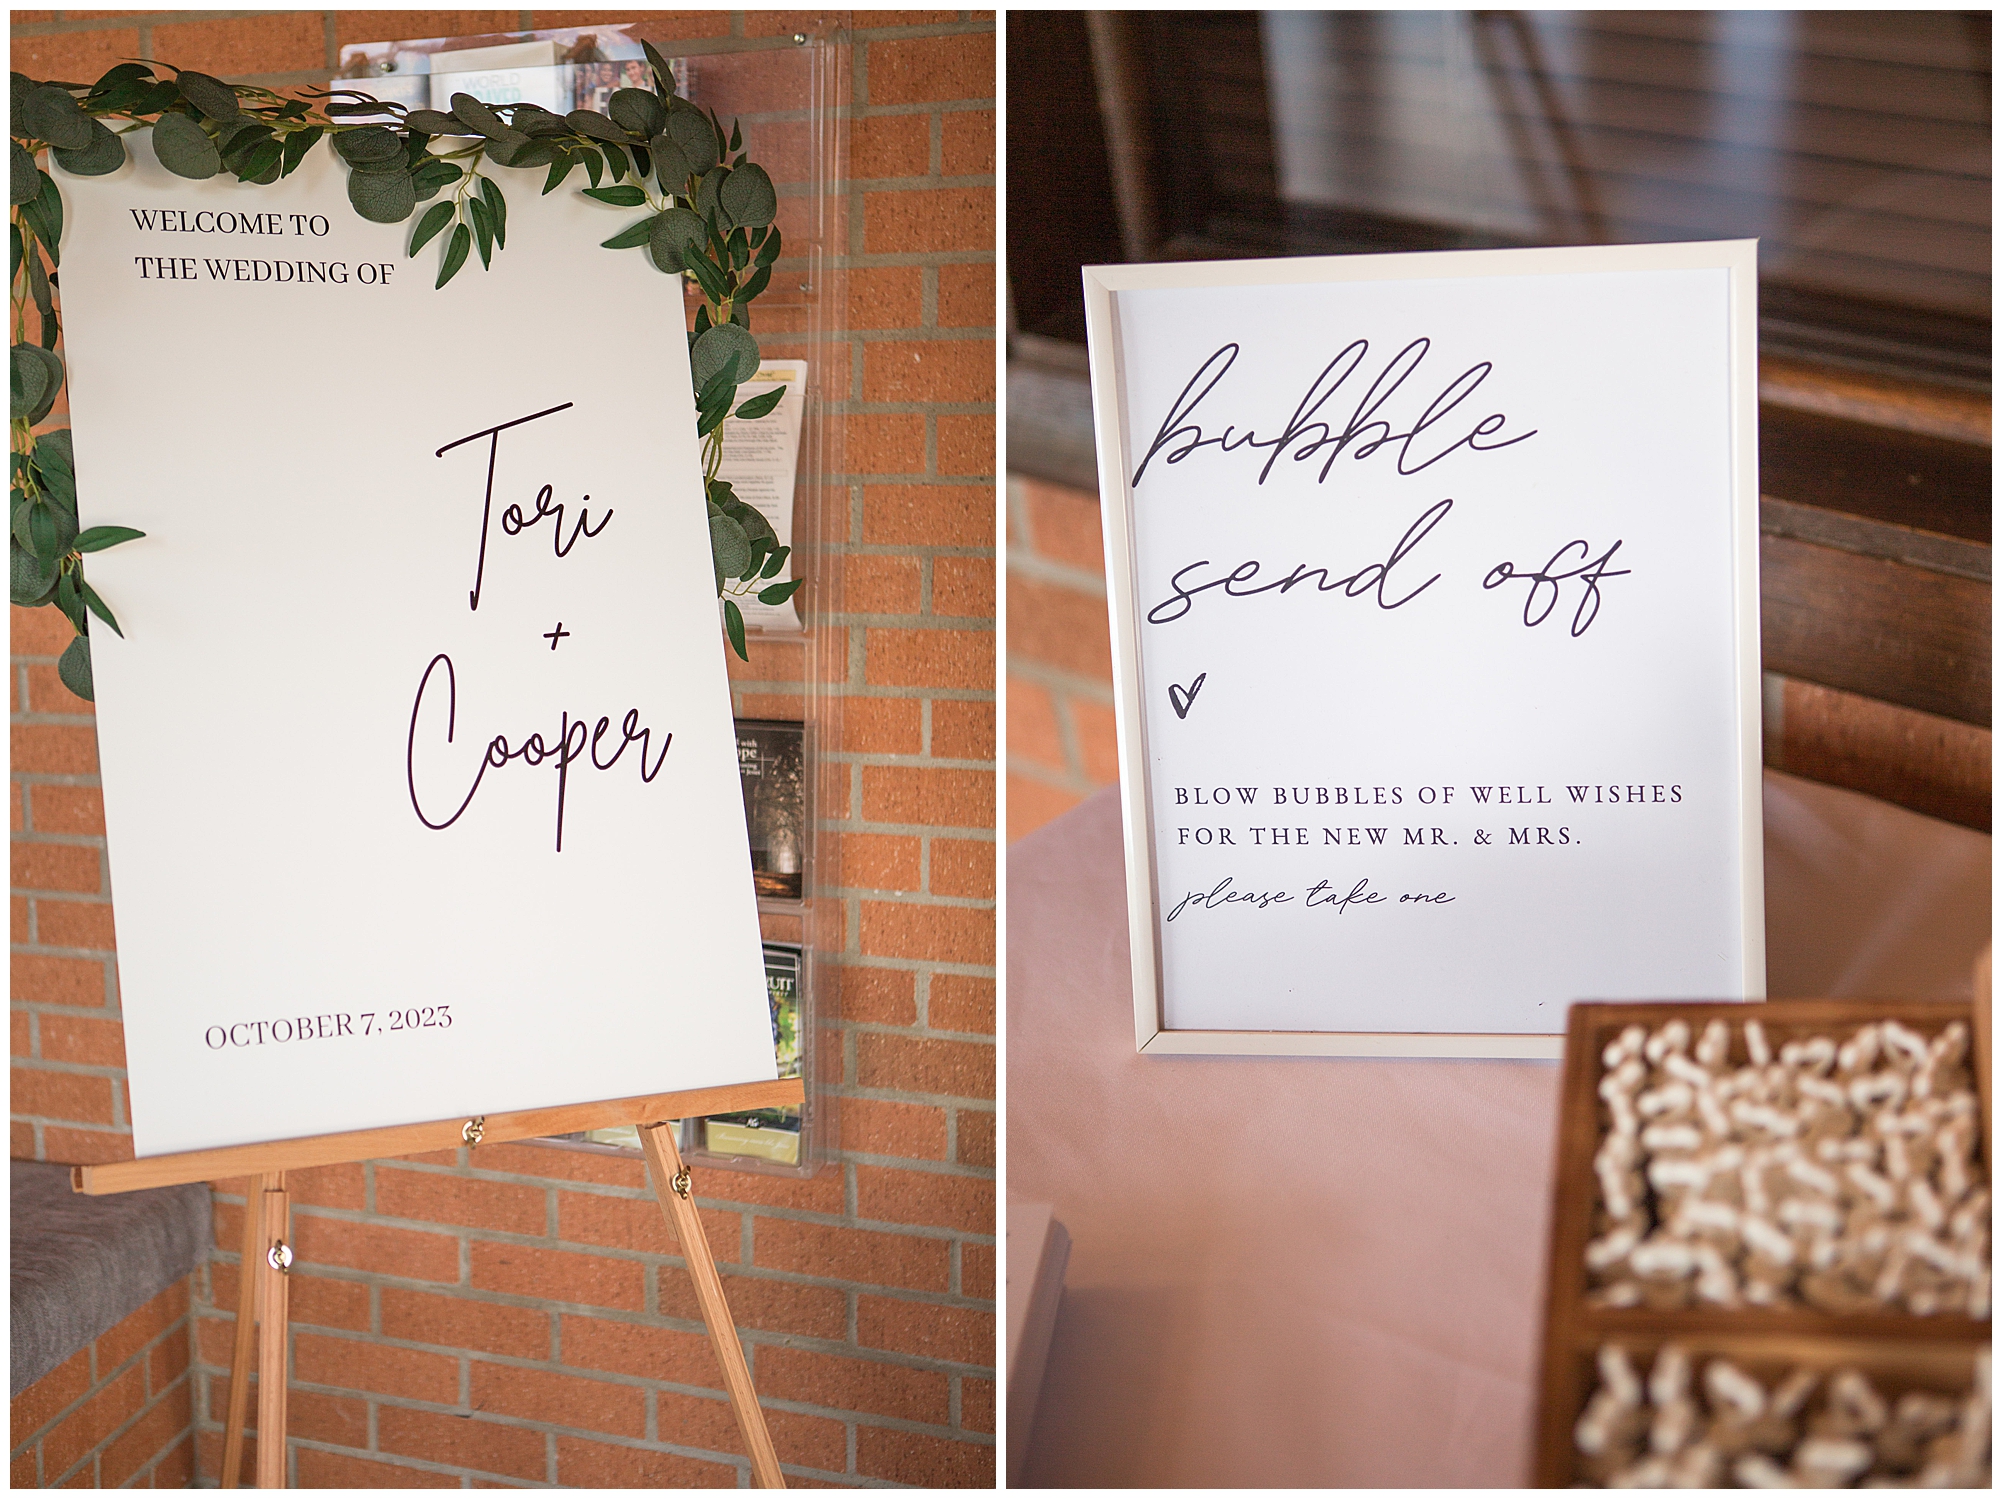 WORLD
WELCOME TO
THE WEDDING OF
Tori
+
Cooper
OCTOBER 7, 2023
with
bubble
send off
BLOW BUBBLES OF WELL WISHES
FOR THE NEW MR. & MRS.
please take one